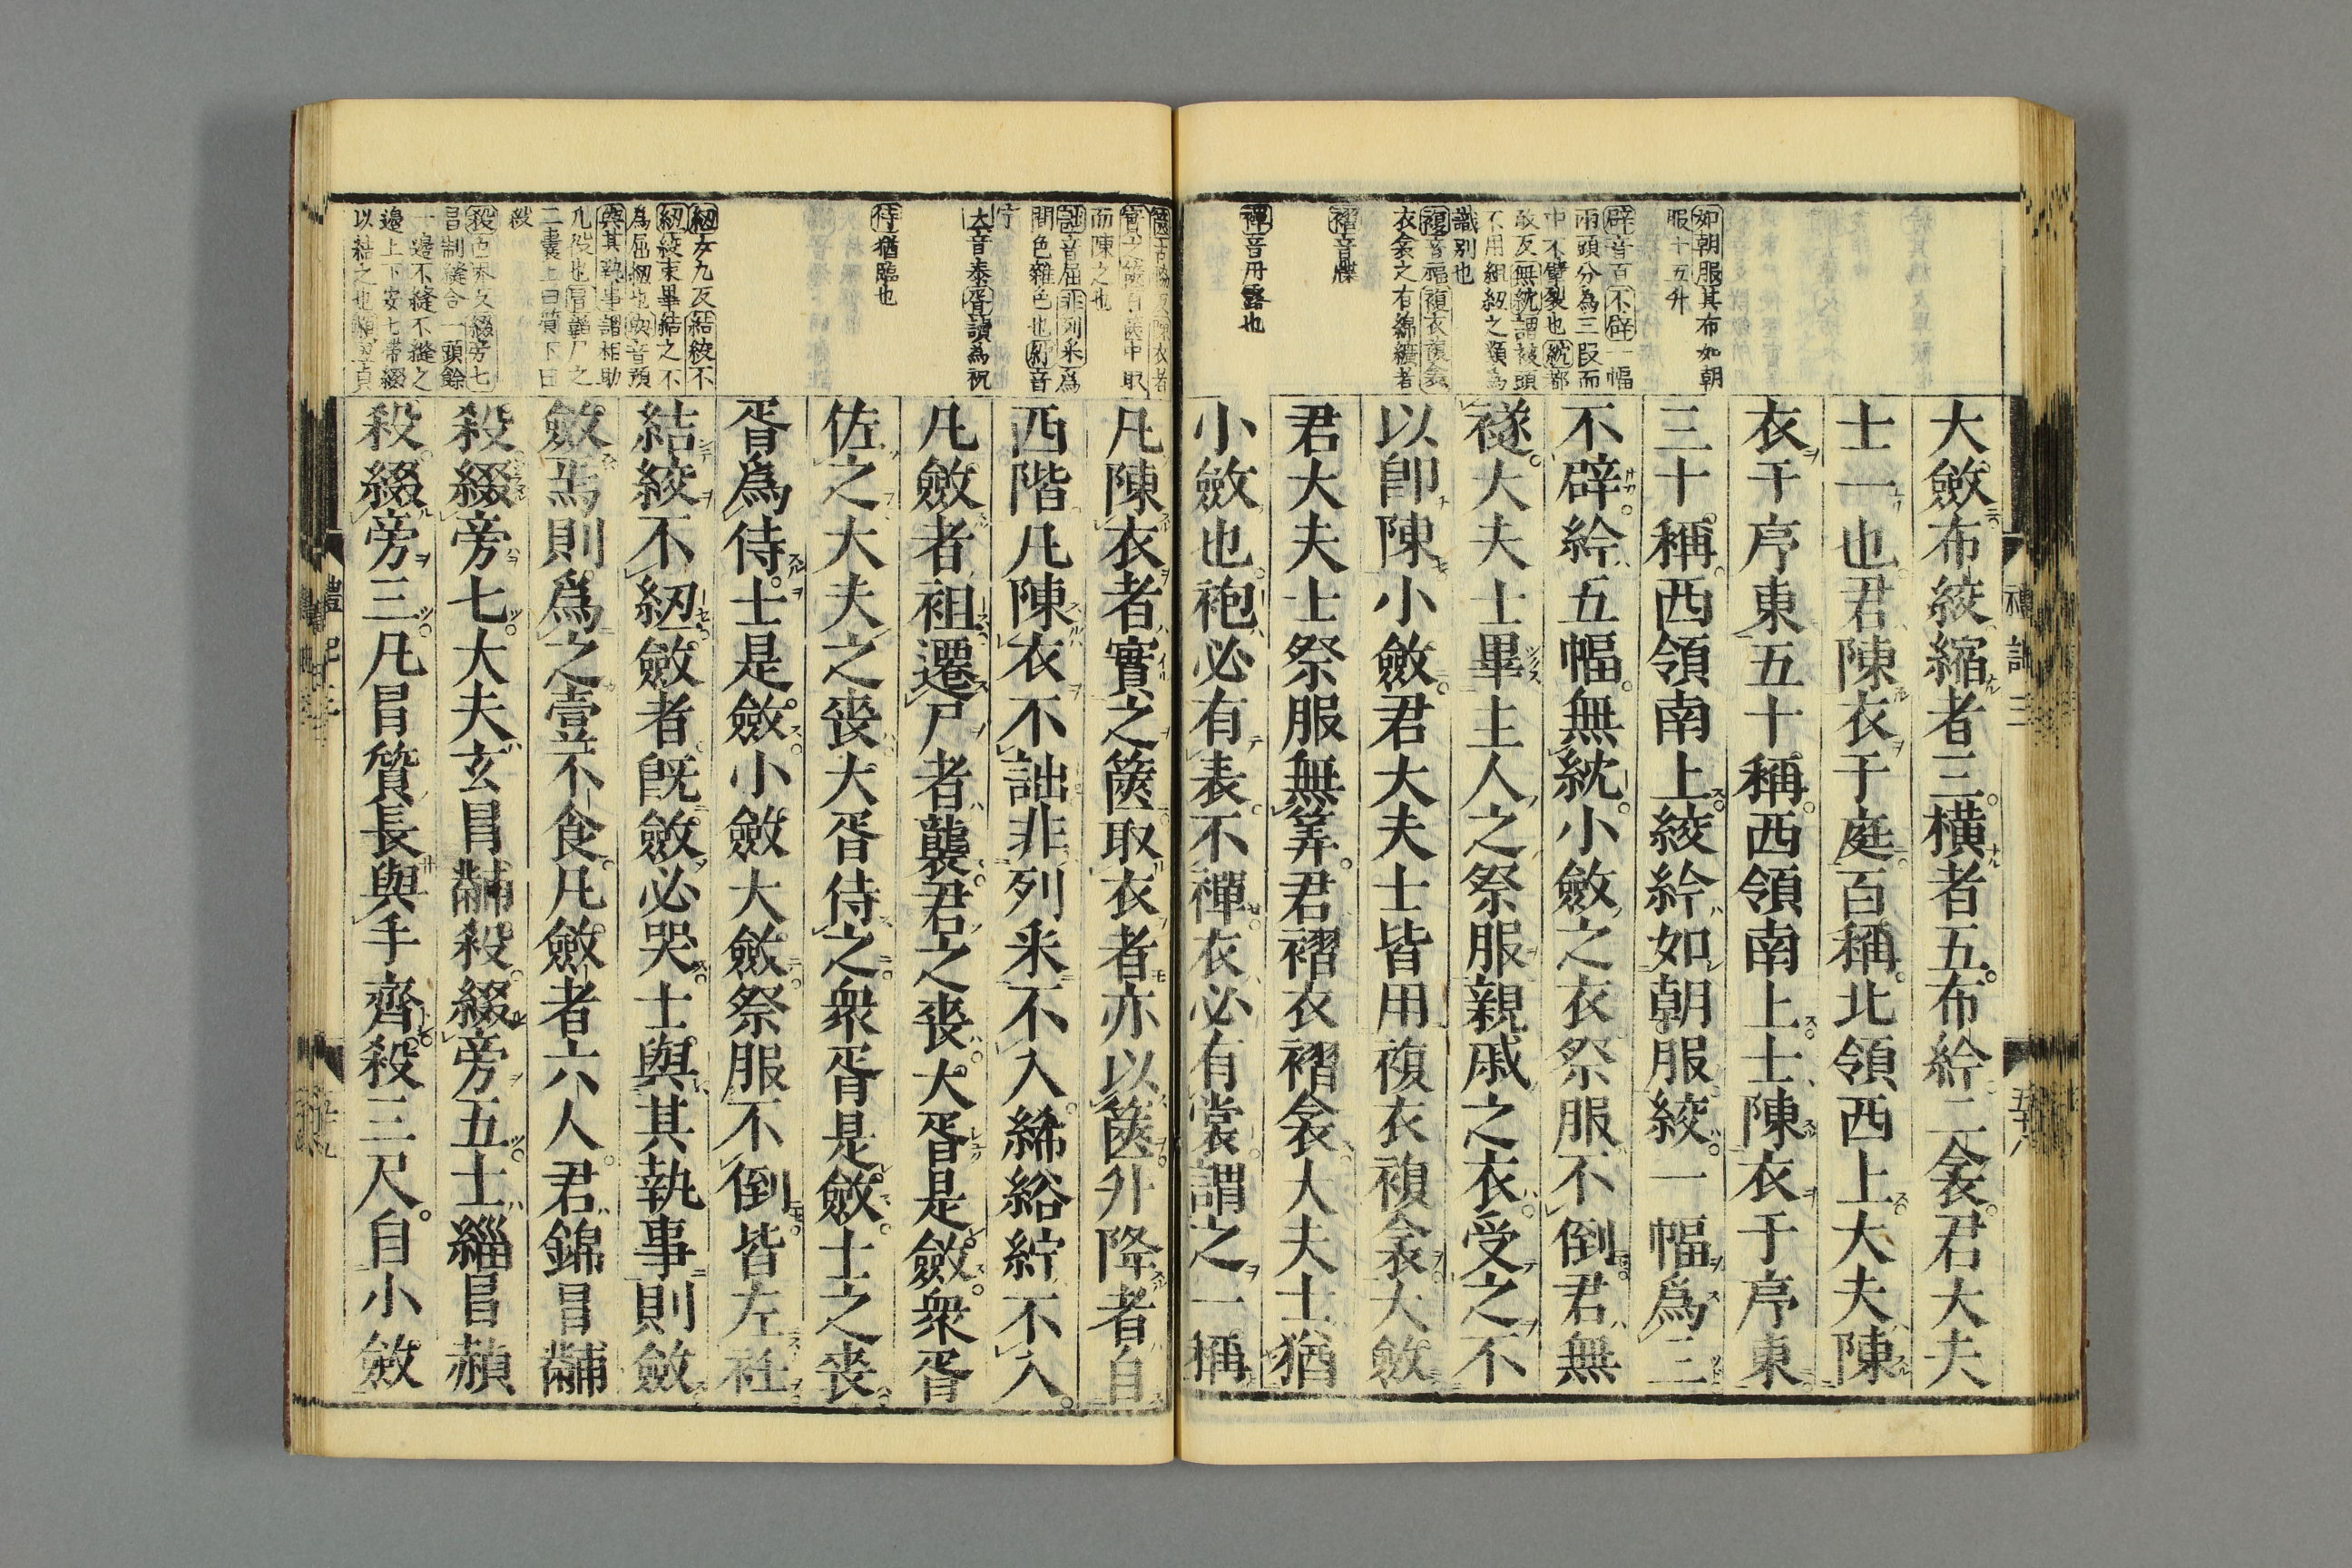 如朝服其布如朝
服十五升
辟音百不辟一幅
兩頭分為三叚而
中不擘裂也紞都
敢反無紞謂被頭
不用組紐之類為
識別也
複音福複衣複衾
衣衾之有綿纊者
褶音牒
襌音丹露也
大斂布絞縮者三橫者五布紟二衾君大夫
士一也君陳衣于庭百稱北領西上大夫陳
衣于序東五十稱西領南上士陳衣于序東
三十稱西領南上絞紟如朝服絞一幅爲三
不辟紟五幅無紞小斂之衣祭服不倒君無
襚大夫士畢主人之祭服親戚之衣受之不
以卽陳小斂君大夫士皆用複衣複衾大斂
君大夫士祭服無筭君褶衣褶衾大夫士猶
小斂也袍必有表不襌衣必有裳謂之一稱
而陳之也
詘音屈非列采為
間色雜色也紵音
佇
大音泰胥讀為祝
侍猶臨也
紐女九反結絞不
紐絞束畢結之不
為屈紐也與音預
與其執事謂相助
凡役也冒韜尸之
二囊上曰質下曰
殺
殺色界反綴旁七
冒制縫合一頭餘
一邊不縫不縫之
邊上下安七帶綴
以結之也
凡陳衣者實之篋取衣者亦以篋升降者自
西階凡陳衣不詘非列采不入絺綌紵不入
凡斂者袒遷尸者襲君之喪大胥是斂衆胥
佐之大夫之喪大胥侍之衆胥是斂士之喪
胥爲侍士是斂小斂大斂祭服不倒皆左衽
結絞不紐斂者旣斂必哭士與其執事則斂
斂焉則爲之壹不食凡斂者六人君錦冒黼
殺綴旁七大夫玄冒黼殺綴旁五士緇冒赬
殺綴旁三凡冒質長與手齊殺三尺自小斂